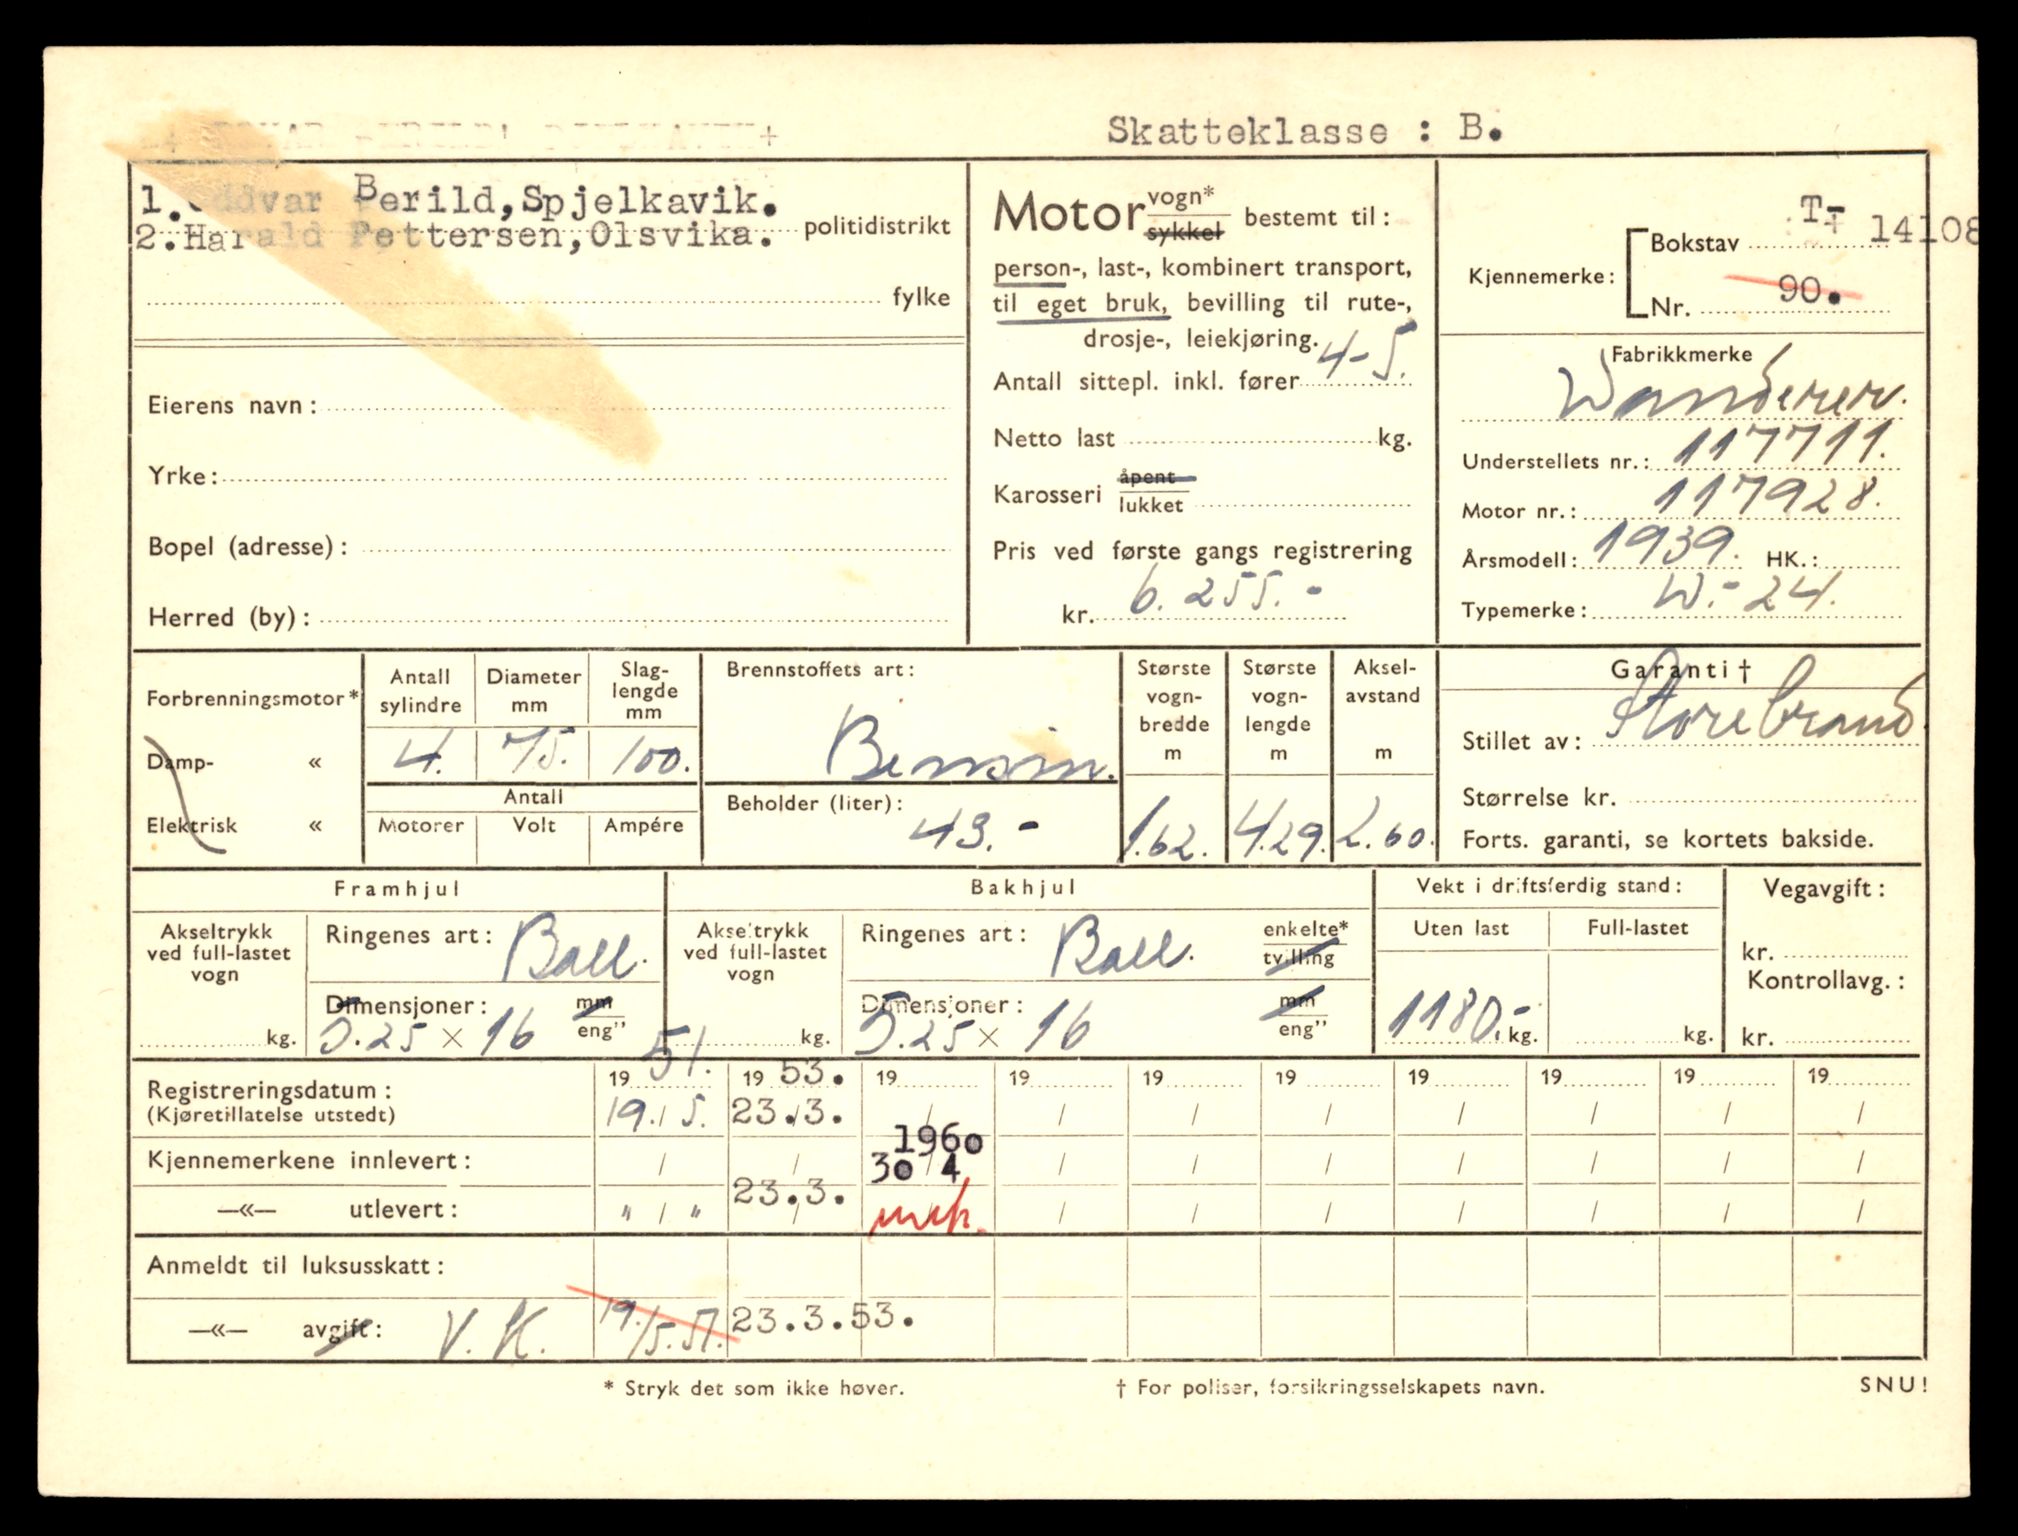 Skatteklasse : B.
1. Oddvar Berild, Spjelkavik.
2. Harald Pettersen, Olsvika. politidistrikt
fylke
Eierens navn:
Yrke:
Bopel (adresse):
Herred (by):
Motor vogn* sykkel bestemt til:
person-, last-, kombinert transport,
til eget bruk, bevilling til rute-,
drosje-, leiekjøring.
Antall sittepl. inkl. fører 4-5.
Netto last kg.
Karosseri åpent lukket
Pris ved første gangs registrering
kr. 6.255.-
Kjennemerke: Bokstav T- 14108
Nr. 90.
Fabrikkmerke
Wanderer.
Understellets nr.: 117711.
Motor nr.: 117928.
Årsmodell: 1939. HK.:
Typemerke: W.-24.
Forbrenningsmotor*
Damp- «
Elektrisk «
Antall sylindre 4.
Diameter mm 75.
Slaglengde mm 100.
Antall
Motorer Volt Ampére
Brennstoffets art:
Bensin.
Beholder (liter):
43.-
Største vogn-bredde m 1.62.
Største vogn-lengde m 4.29.
Aksel-avstand m 2.60.
Garanti †
Stillet av: Storebrand
Størrelse kr.
Forts. garanti, se kortets bakside.
Framhjul
Akseltrykk ved full-lastet vogn kg.
Ringenes art: Ball.
Dimensjoner: mm eng"
5.25 × 16
Bakhjul
Akseltrykk ved full-lastet vogn kg.
Ringenes art: Ball. enkelte* tvilling
Dimensjoner: mm eng"
5.25 × 16
Vekt i driftsferdig stand:
Uten last Full-lastet
1180.- kg. kg.
Vegavgift:
kr.
Kontrollavg.:
kr.
Registreringsdatum: 19 51. 19 53. 19 19 19 19 19 19 19 19
(Kjøretillatelse utstedt) 19./5. 23./3. / / / / / / / /
Kjennemerkene innlevert: / / 1960 30/4 / / / / / / /
—«— utlevert: " / " 23./3. / / / / / / /
Anmeldt til luksusskatt:
—«— avgift: V. K. 19./5.51. 23.3.53.
* Stryk det som ikke høver. † For poliser, forsikringsselskapets navn. SNU!